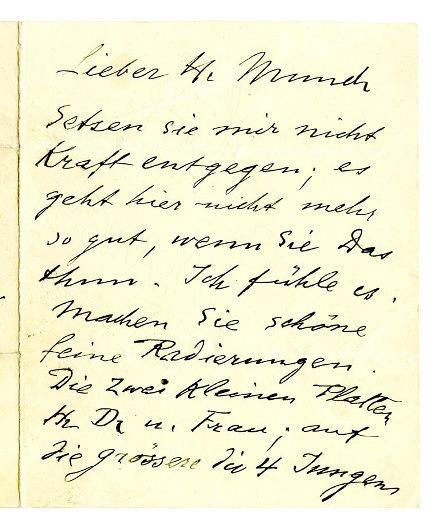 Lieber H. Munch
Setzen Sie mir nicht
Kraft entgegen; es
geht hier nicht mehr
so gut, wenn Sie Das
thun. Ich fühle es.
Machen Sie schöne
feine Radierungen.
Die zwei kleinen Platten
H. Dr u. Frau; auf
die grössere die 4 Jungen